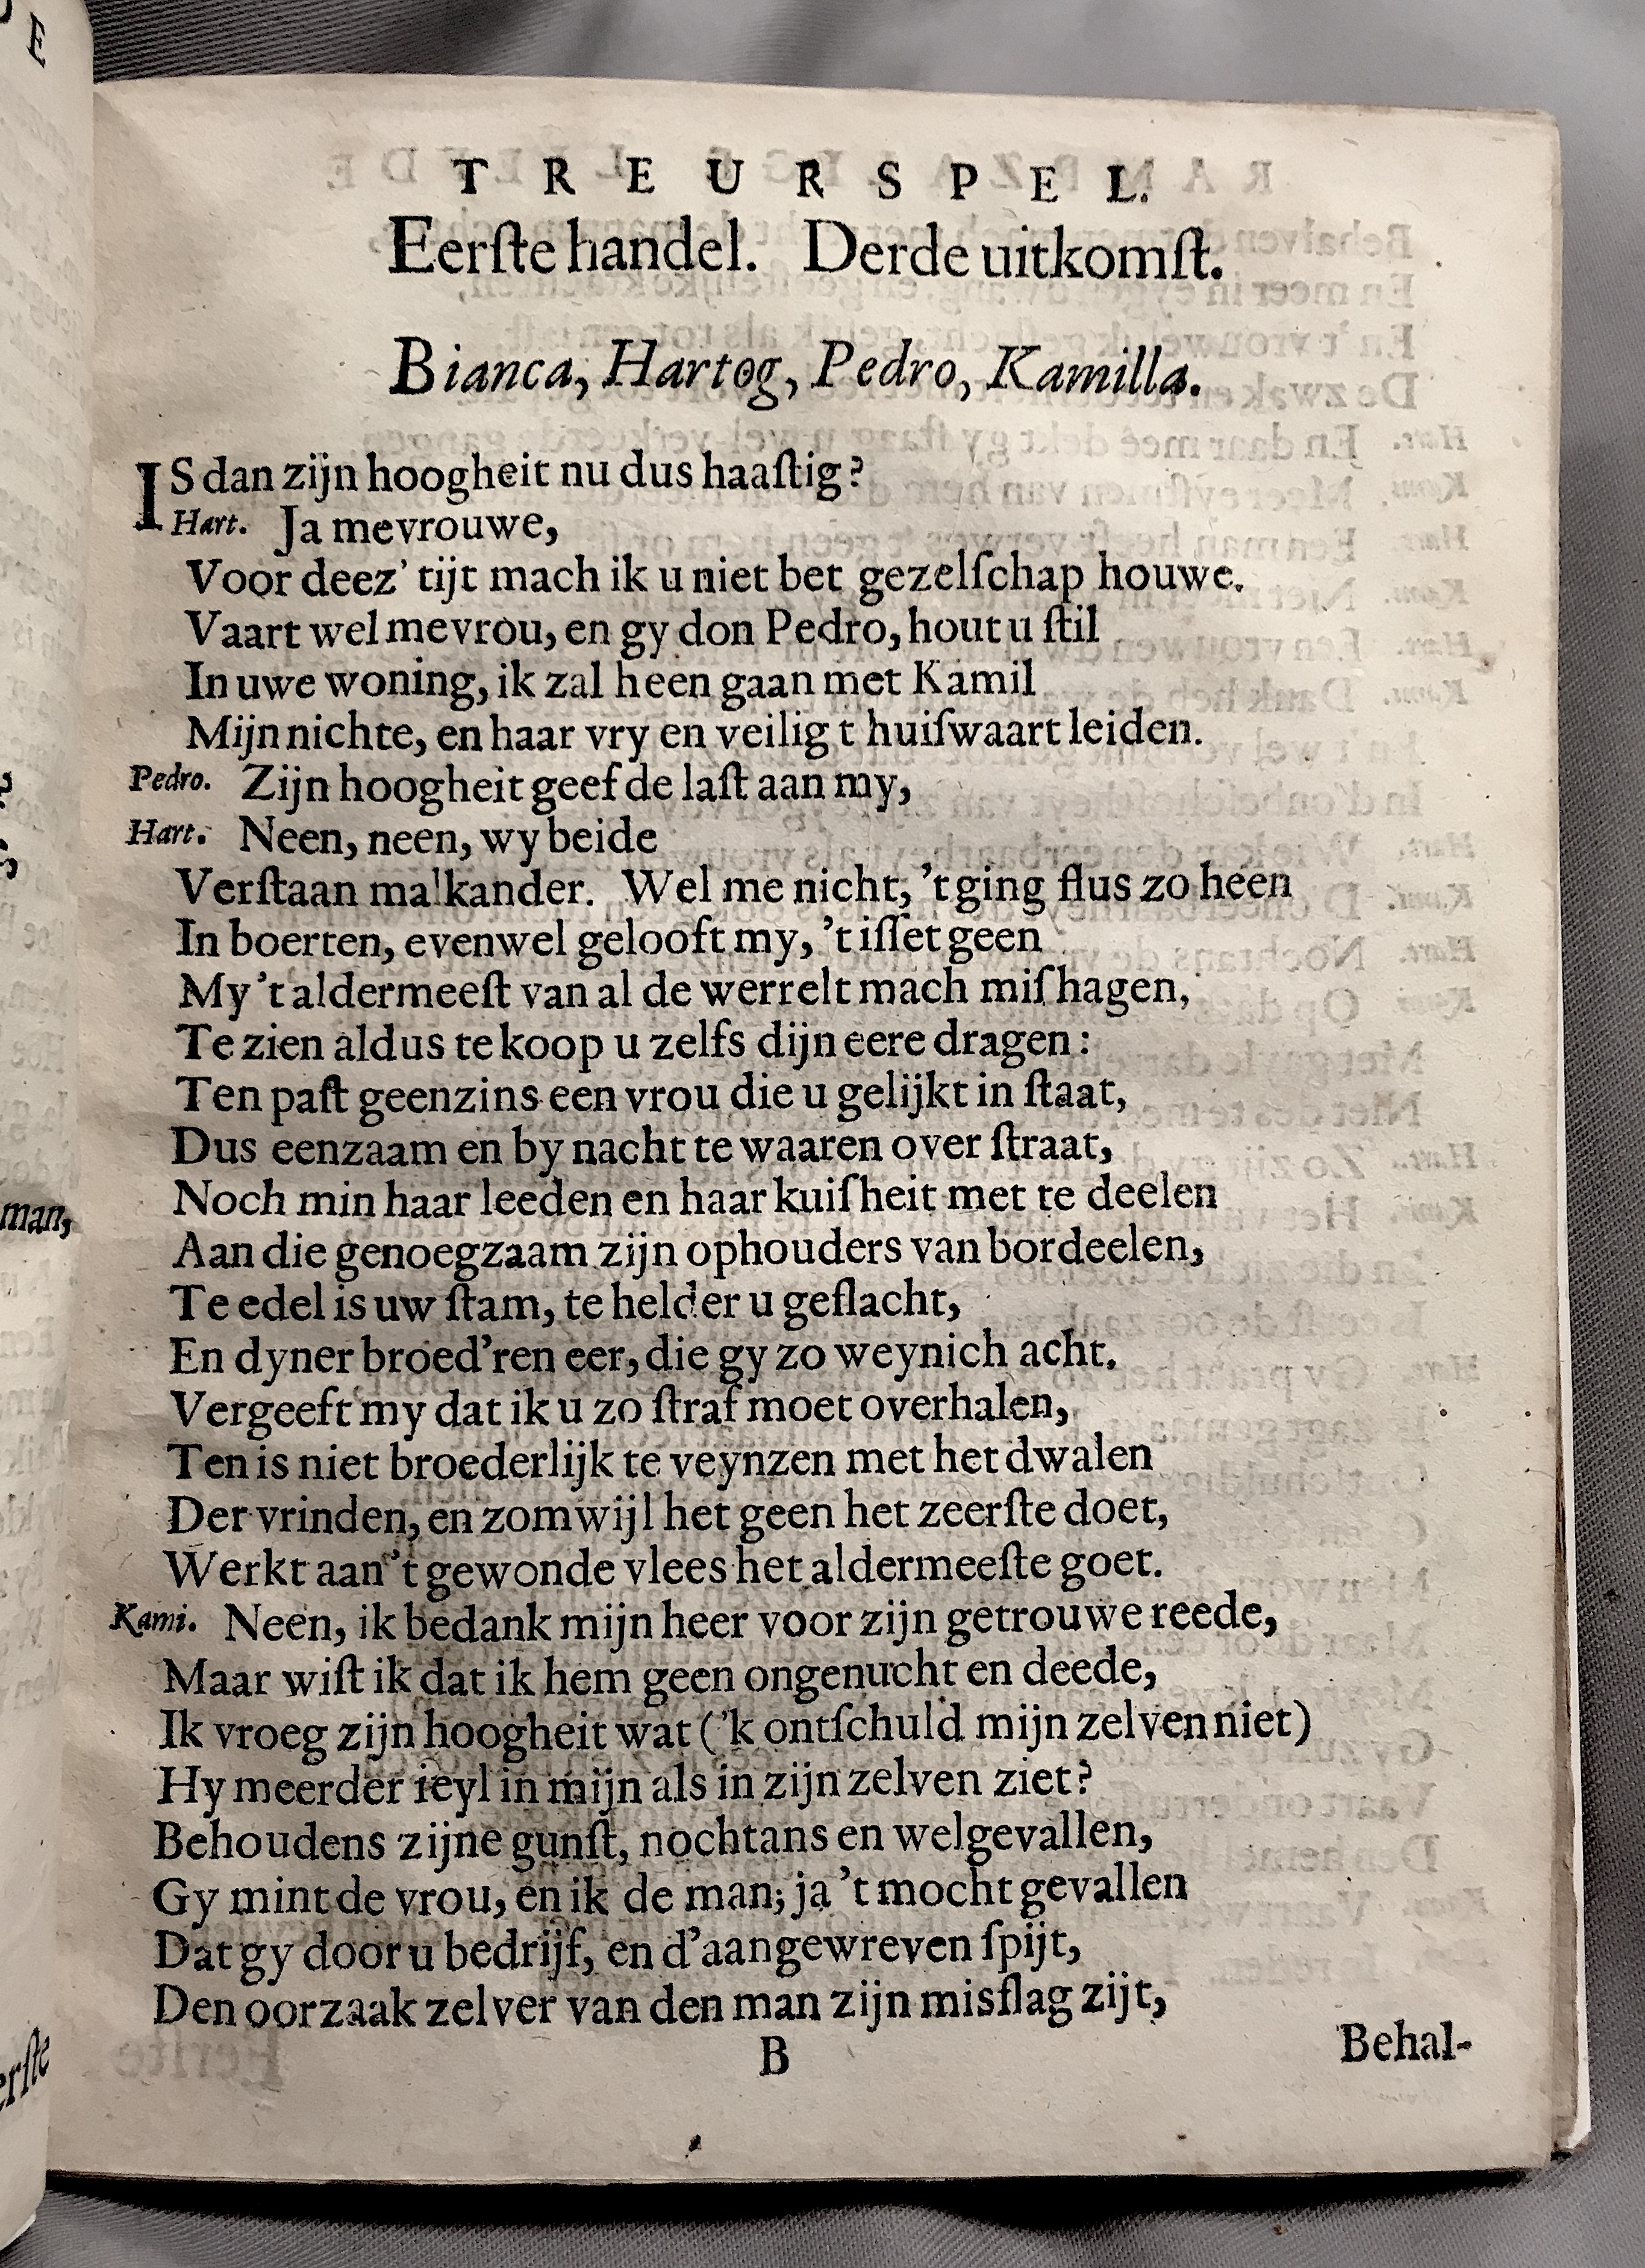 TREURSPEL.
Eerſte handel. Derde uitkomſt.
Bianca, Hartog, Pedro, Kamilla.
IS dan zijn hoogheit nu dus haaſtig?
Hart. Ja mevrouwe,
Voor deez' tijt mach ik u niet bet gezelſchap houwe.
Vaart wel mevrou, en gy don Pedro, hout u ſtil
In uwe woning, ik zal heen gaan met Kamil
Mijn nichte, en haar vry en veilig t huiſwaart leiden.
Pedro. Zijn hoogheit geef de laſt aan my,
Hart. Neen, neen, wy beide
Verſtaan malkander. Wel me nicht, 't ging flus zo heen
In boerten, evenwel gelooft my, 't iſſet geen
My 't aldermeeſt van al de werrelt mach miſhagen,
Te zien aldus te koop u zelfs dijn eere dragen:
Ten paſt geenzins een vrou die u gelijkt in ſtaat,
Dus eenzaam en by nacht te waaren over ſtraat,
Noch min haar leeden en haar kuiſheit met te deelen
Aan die genoegzaam zijn ophouders van bordeelen,
Te edel is uw ſtam, te helder u geſlacht,
En dyner broed'ren eer, die gy zo weynich acht.
Vergeeft my dat ik u zo ſtraf moet overhalen,
Ten is niet broederlijk te veynzen met het dwalen
Der vrinden, en zomwijl het geen het zeerſte doet,
Werkt aan 't gewonde vlees het aldermeeſte goet.
Kami. Neen, ik bedank mijn heer voor zijn getrouwe reede,
Maar wiſt ik dat ik hem geen ongenucht en deede,
Ik vroeg zijn hoogheit wat ('k ontſchuld mijn zelven niet)
Hy meerder feyl in mijn als in zijn zelven ziet?
Behoudens zijne gunſt, nochtans en welgevallen,
Gy mint de vrou, en ik de man; ja 't mocht gevallen
Dat gy door u bedrijf, en d'aangewreven ſpijt,
Den oorzaak zelver van den man zijn misſlag zijt,
B
Behal-